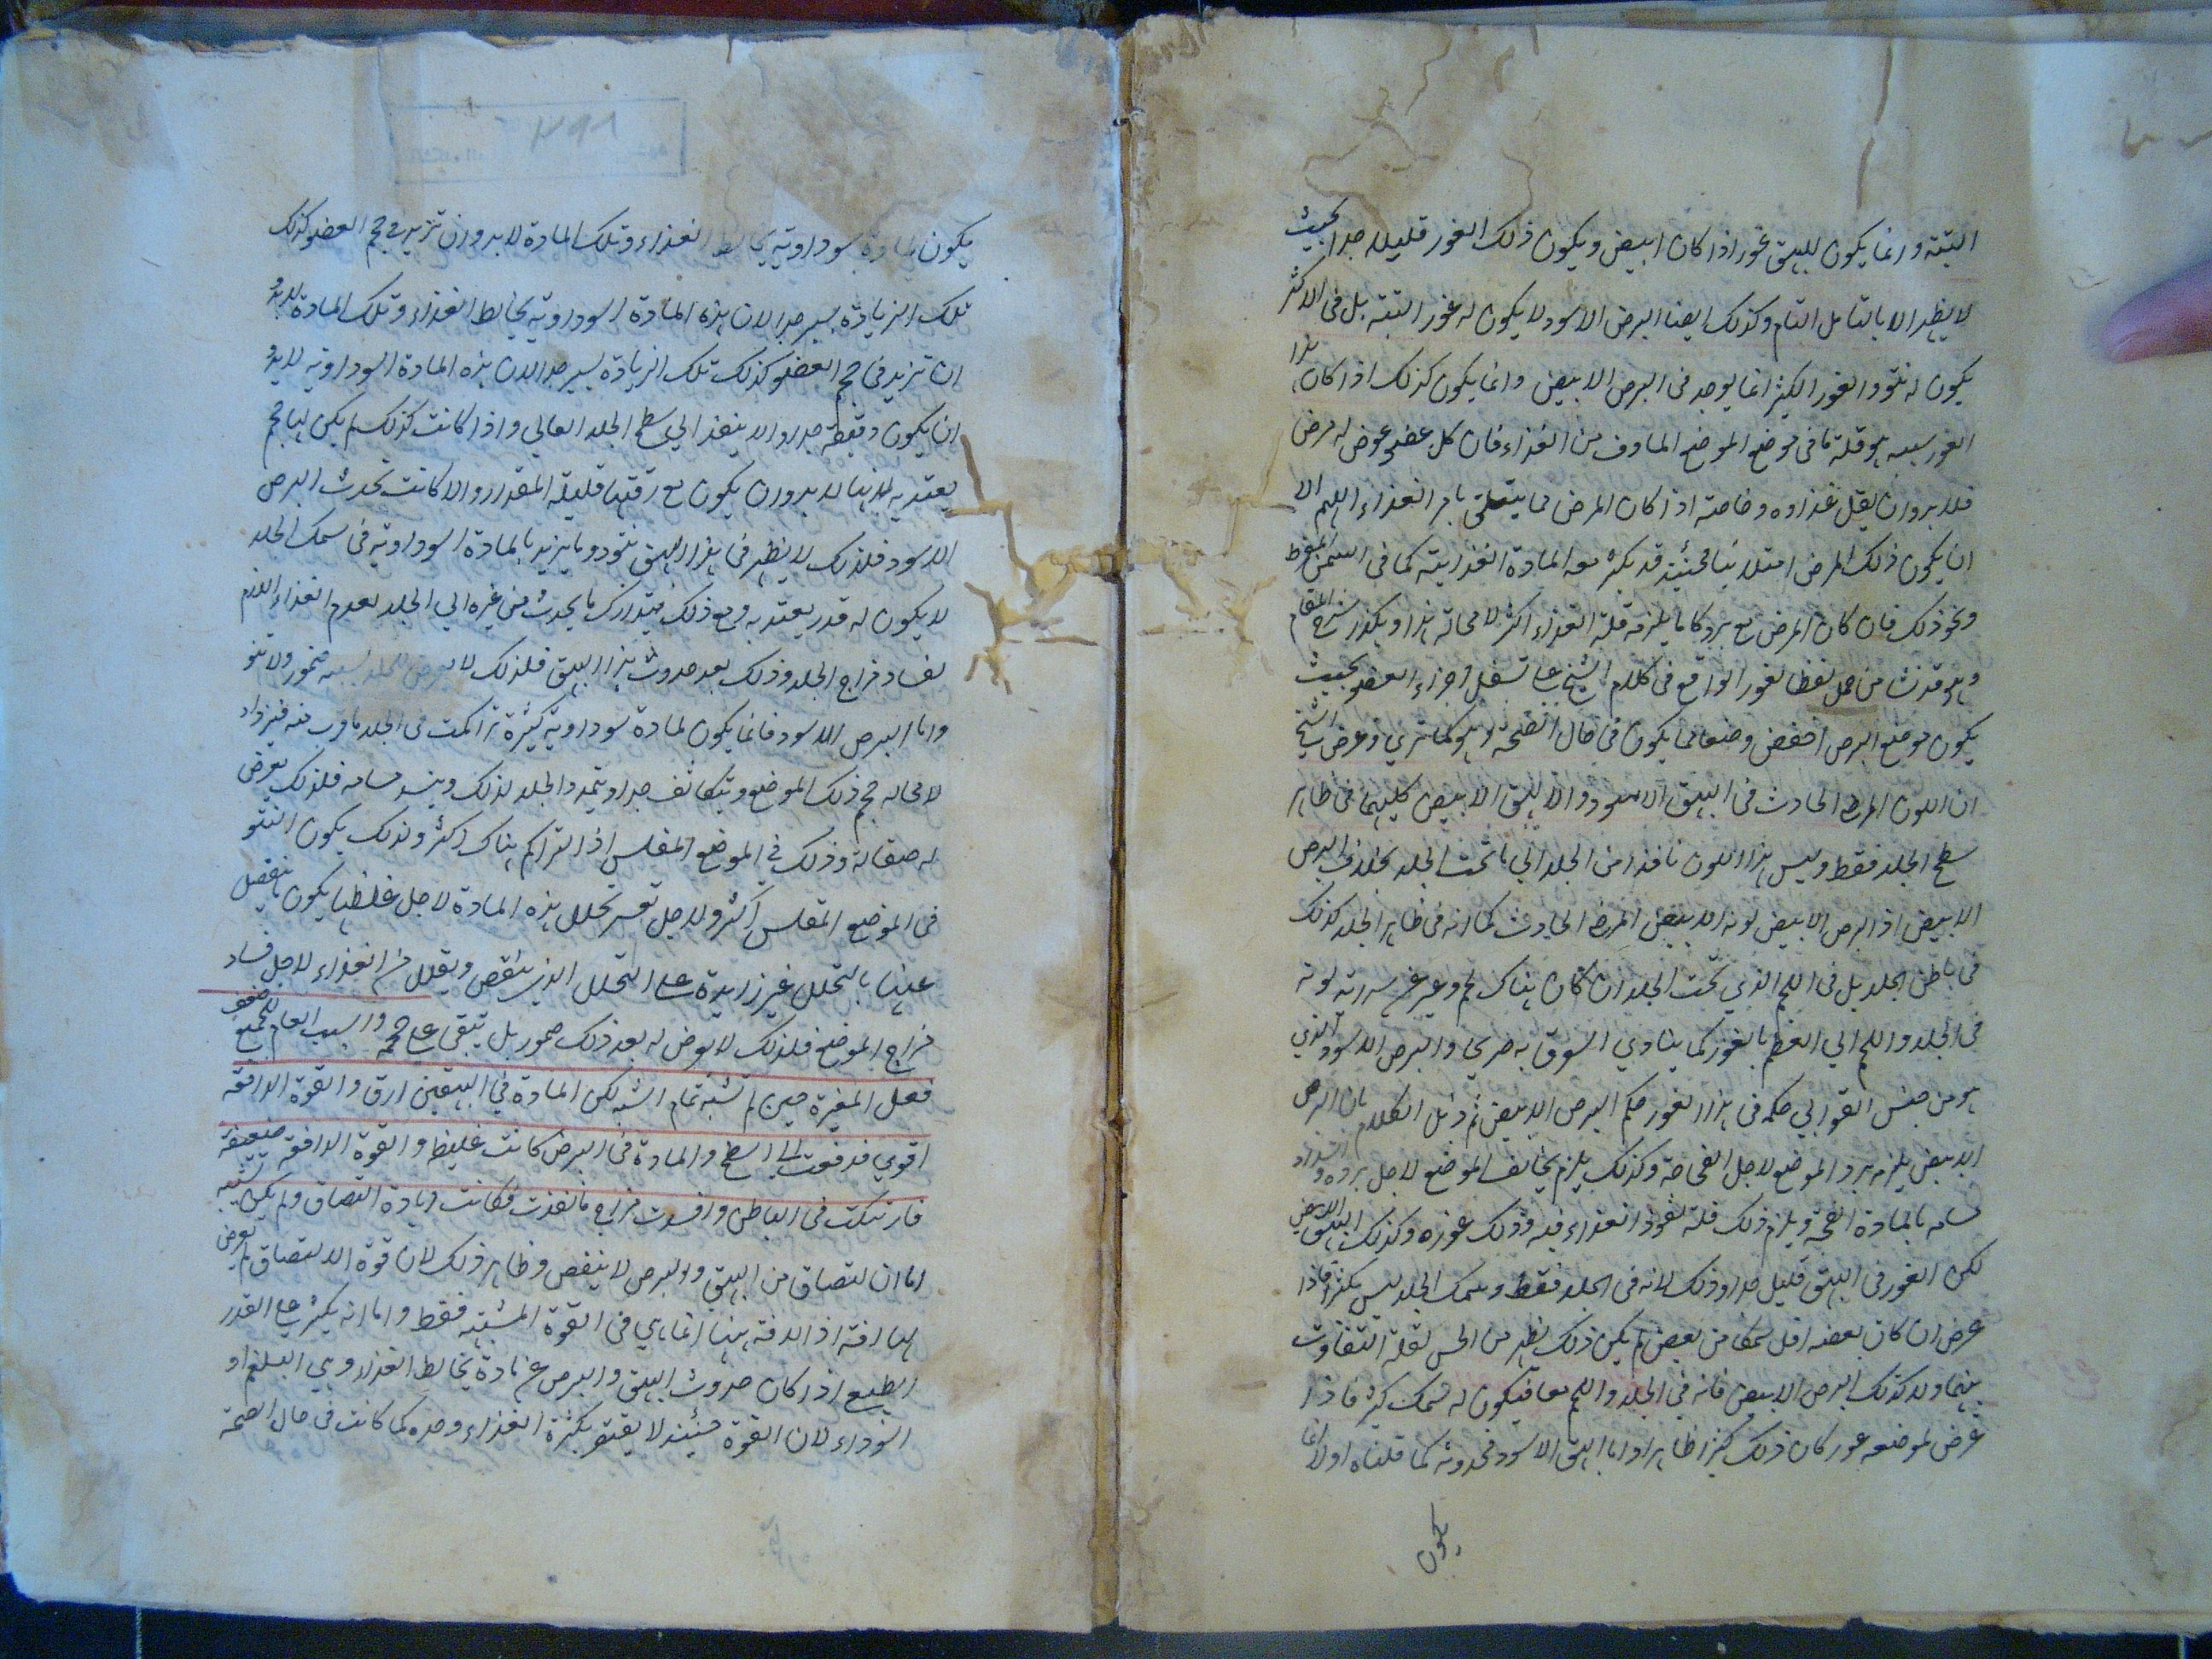 البتة وانما يكون للبهق غور اذا كان ابيض ويكون ذلك الغور قليلا جدا بحيث
لا يظهر الا بالتامل التام وكذلك ايضا البرص الاسود لا يكون له غور البتة بل فى الاكثر
يكون له نتو والغور الكثير انما يوجد فى البرص الابيض وانما يكون كذلك اذا كان هذا
الغور سببه هو قلة ما فى موضع الموضع الماوف من الغذاء فان كل عضو عرض له مرض
فلا بد وان يقل غذاوه وخاصة اذا كان المرض مما يتعلق بامر الغذاء اللهم الا
ان يكون ذلك المرض امتلائيا فحينئذ قد يكثر معه المادة الغذائية كما فى السمن المفرط
ونحو ذلك فان كان المرض مع برد كان ما يلزمه قلة الغذاء اكثر لا محالة هذا
وهو قد نشا من حمل لفظ الغور الواقع فى كلام الشيخ على تسفل اجزاء العضو بحيث
يكون موضع البرص اخفض وضعا مما يكون فى حال الصحة وهو كما ترى وغرض الشيخ
ان اللون الحادث فى البهق الاسود والبهق الابيض كليهما فى ظاهر
سطح الجلد فقط وليس هذا اللون نافذا من الجلد الي ما تحت الجلد بخلاف البرص
الابيض اذ البرص الابيض لونه الابيض الحادث كما انه فى ظاهر الجلد كذلك
فى باطن الجلد بل فى اللحم الذي تحت الجلد ان كان هناك لحم
فى الجلد واللحم الي العظم بالغور كما ينادي السوق به صريحا والبرص الاسود الذي
هو من جنس القوابي حكمه فى هذا الغور حكم البرص الابيض ثم ذيل الكلام بان البرص
الابيض يلزمه برد الموضع لاجل الفجاجة وكذلك يلزم تكاثف الموضع لاجل برده وانسداد
مسامه بالمادة الفجة ويلزم ذلك قلة نفوذ الغذاء فيه وذلك غوره وكذلك البهق الابيض
لكن الغور فى البهق قليل جدا وذلك لانه فى الجلد فقط وسمك الجلد ليس بكثير فاذا
عرض ان كان بعضه اقل سمكا من بعض لم يكن ذلك يظهر من الحس لقلة التفاوت
بينهما ولا كذلك البرص الابيض فانه فى الجلد واللحم معا فيكون له سمك كثير فاذا
عرض لموضعه غور كان ذلك كثيرا ظاهرا واما البهق الاسود فحدوثه كما قلناه اولا انما
يكون
يكون لمادة سوداوية يخالط الغذاء وتلك المادة لا بد وان تزيد فى حجم العضو كذلك
تلك الزيادة يسير جدا لان هذه المادة السوداوية يخالط الغذاء وتلك المادة لابد
ان تزيد فى حجم العضو كذلك تلك الزيادة يسير جدا لان هذه المادة السوداوية لابد
ان يكون رقيقة جدا والا لم ينفذ الي سطح الجلد العالي واذا كانت كذلك لم يكن لها حجم
يعتد به لانها لا بد وان يكون مع رقتها قليلة المقدار والا كانت تحدث البرص
الاسود فلذلك لا يظهر فى هذا البهق نتو وما يزيد بالمادة السوداوية فى سمك الجلد
لا يكون له قدر يعتد به ومع ذلك فيتدارك ما يحدث من غيره الي الجلد لعدم الغذاء اللازم
لفساد مزاج الجلد وذلك بعد حدوث هذا البهق فلذلك لا يعرض للجلد بسببه ضمور ولا نتو
واما البرص الاسود فانما يكون لمادة سوداوية كثيرة تراكمت فى الجلد وما قرب منه فيزداد
لا محاله حجم ذلك الموضع ويتكاثف جدا ويتمدد الجلد لذلك وينسد مسامه فلذلك يعرض
له صقالة وذلك في الموضع المفلس اذ التراكم هناك اكثر ولذلك يكون النتو
فى الموضع المتفلس اكثر ولاجل تعسر تحلل هذه المادة لاجل غلظها يكون ما ينفصل
عنها بالتحلل غير زايدة على التحلل الذي ينقص ويقلل من الغذاء لاجل فساد
مزاج الموضع فلذلك لا يعرض له بعد ذلك ضمور بل تبقى على حجمه والسبب العام للجميع ضعف
فعل المغيرة حين لم تشبه تمام الشبه لكن المادة في البهقين ارق والقوة الدافعة
اقوي فدفعت الى السطح والمادة فى البرص كانت غليظ والقوة الدافعة ضعيفة
فارتبكت فى الباطن وافسدت مزاج ما نفذت فكانت زيادة التصاق ولم يكن تشبيه
اما ان التصاق من البهق والبرص لا ينقص وظاهر ذلك لان قوة الالتصاق لم يعرض
لها افة اذ الافة ههنا انما هي فى القوة المشبهة فقط واما انه يكثر على القدر
الطبيعي اذ كان حدوث البهق والبرص عن مادة يخالط الغذاء وهي البلغم او
السوداء لان القوة حينئذ لا يقتقر بكثرة الغذاء وحده كما كانت فى حال الصحة